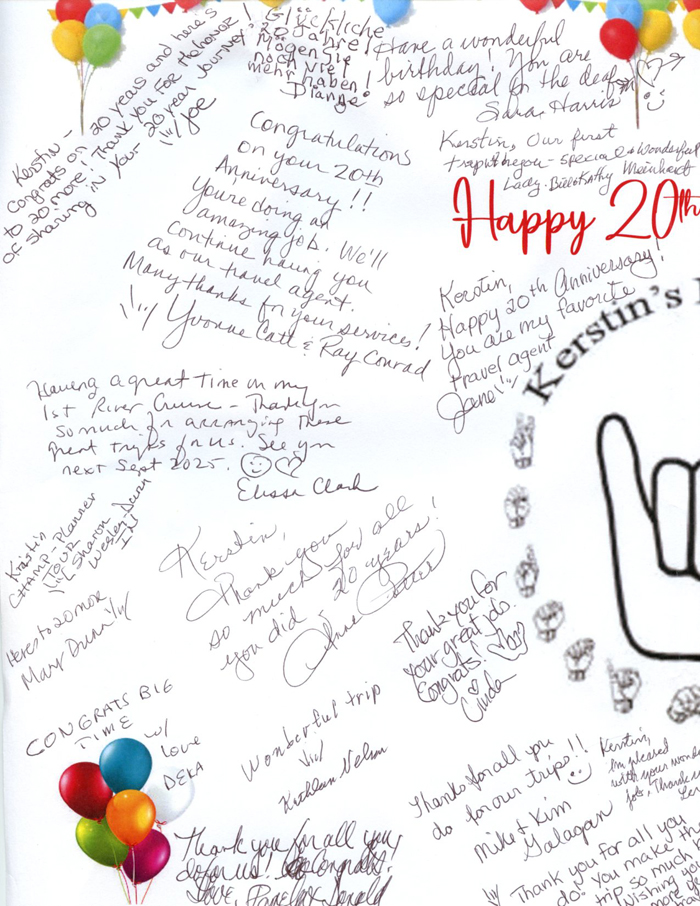 Kerstin -
Congrats on 20 years and here's
to 20 more! Thank you for the honor
of sharing in your 20 year journey!
Joe
Glückliche
20 Jahre!
Mögen Sie
noch viel
mehr haben!
Diane
Have a wonderful
birthday! You are
so special in the deaf
Sara Harris
Kerstin, Our first
trip with you - special & wonderful
Lady. Bill & Kathy Meinhert
Happy 20th
Congratulations
on your 20th
Anniversary!!
You're doing an
amazing job. We'll
continue having you
as our travel agent.
Many thanks for your services!
Yvonne Catt & Ray Conrad
Kerstin,
Happy 20th Anniversary!
You are my favorite
travel agent
Jane
Kerstin's
Having a great time on my
1st River Cruise - Thank you
so much for arranging these
great trips for us. See you
next Sept 2025.
Elissa Clark
Kristin
CHAMP - Planner
TOUR
Sharon
Wesley-Dunn
IN
Here's to 20 more
Mary Dunn
Kerstin,
Thank you
so much for all
you did - 20 years!
Thank you for
your great job.
Congrats!
Cinda
CONGRATS BIG
TIME
w/
Love
DEKA
Wonderful trip
Kathleen
Thanks for all you
do for our trips!!
Mike & Kim
Galagan
Kerstin,
I'm pleased
with your
job. Thank
Thank you for all you
do for us! Congrats!
Love, Pam & Donald
Thank you for all you
do! You make the
trip so much
Wishing you
more